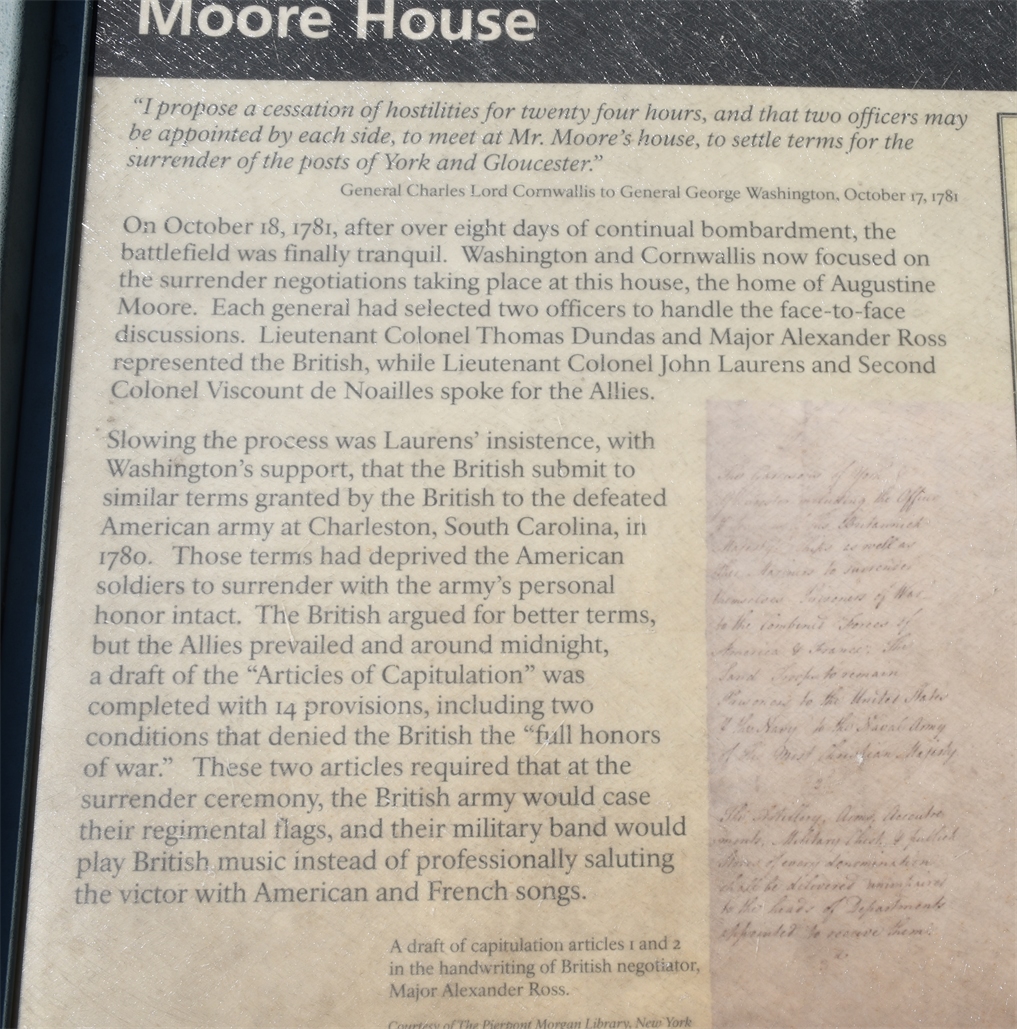 Moore House
“I propose a cessation of hostilities for twenty four hours, and that two officers may
be appointed by each side, to meet at Mr. Moore’s house, to settle terms for the
surrender of the posts of York and Gloucester.”
General Charles Lord Cornwallis to General George Washington, October 17, 1781
On October 18, 1781, after over eight days of continual bombardment, the
battlefield was finally tranquil.  Washington and Cornwallis now focused on
the surrender negotiations taking place at this house, the home of Augustine
Moore.  Each general had selected two officers to handle the face-to-face
discussions.  Lieutenant Colonel Thomas Dundas and Major Alexander Ross
represented the British, while Lieutenant Colonel John Laurens and Second
Colonel Viscount de Noailles spoke for the Allies.
Slowing the process was Laurens’ insistence, with
Washington’s support, that the British submit to
similar terms granted by the British to the defeated
American army at Charleston, South Carolina, in
1780.  Those terms had deprived the American
soldiers to surrender with the army’s personal
honor intact.  The British argued for better terms,
but the Allies prevailed and around midnight,
a draft of the “Articles of Capitulation” was
completed with 14 provisions, including two
conditions that denied the British the “full honors
of war.”  These two articles required that at the
surrender ceremony, the British army would case
their regimental flags, and their military band would
play British music instead of professionally saluting
the victor with American and French songs.
of York
including the Office
Majesty as well as
to surrender
themselves Prisoners of War
to the Combined Forces of
America & France. The
Land Troops to remain
Prisoners to the United States
the Navy to the Naval Army
of the Most Christian Majesty
2
The Artillery, Arms, Accoutre
ments, Military Chest, & publick
Stores of every denomination
shall be delivered unimpaired
to the heads of Departments
appointed to receive them.
A draft of capitulation articles 1 and 2
in the handwriting of British negotiator,
Major Alexander Ross.
Courtesy of The Pierpont Morgan Library, New York